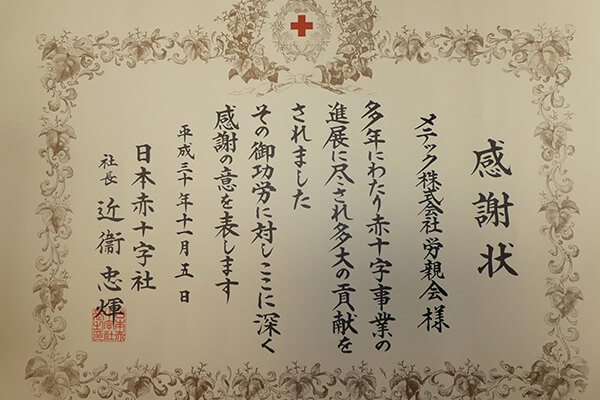 感謝状
メテック株式会社労親会 様
多年にわたり赤十字事業の
進展に尽され多大の貢献を
されました
その御功労に対しここに深く
感謝の意を表します
平成三十年十一月五日
日本赤十字社
社長 近衞忠煇